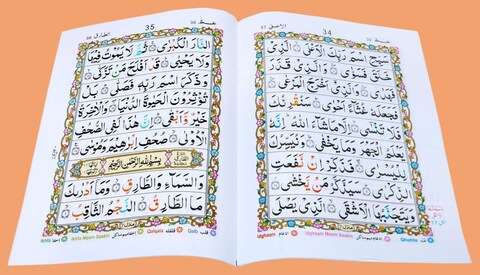 34
سَبِّحِ اسْمَ رَبِّكَ الْاَعْلَى الَّذِىْ
خَلَقَ فَسَوّٰى وَالَّذِىْ قَدَّرَ
فَهَدٰى وَالَّذِىْٓ اَخْرَجَ الْمَرْعٰى
فَجَعَلَهٗ غُثَآءً اَحْوٰى سَنُقْرِئُكَ
فَلَا تَنْسٰٓى اِلَّا مَا شَآءَ اللّٰهُ اِنَّهٗ
يَعْلَمُ الْجَهْرَ وَمَا يَخْفٰى وَنُيَسِّرُكَ
لِلْيُسْرٰى فَذَكِّرْ اِنْ نَّفَعَتِ
الذِّكْرٰى سَيَذَّكَّرُ مَنْ يَّخْشٰى
وَيَتَجَنَّبُهَا الْاَشْقَى الَّذِىْ يَصْلَى
Idgham ادغام Idgham Meem Saakin Qhunna غنہ
الطارق 35
النَّارَ الْكُبْرٰى ثُمَّ لَا يَمُوْتُ فِيْهَا
وَلَا يَحْيٰى قَدْ اَفْلَحَ مَنْ تَزَكّٰى
وَذَكَرَ اسْمَ رَبِّهٖ فَصَلّٰى بَلْ
تُؤْثِرُوْنَ الْحَيٰوةَ الدُّنْيَا وَالْاٰخِرَةُ
خَيْرٌ وَّاَبْقٰى اِنَّ هٰذَا لَفِى الصُّحُفِ
الْاُوْلٰى صُحُفِ اِبْرٰهِيْمَ وَمُوْسٰى
بِسْمِ اللّٰهِ الرَّحْمٰنِ الرَّحِيْمِ
وَالسَّمَآءِ وَالطَّارِقِ وَمَآ اَدْرٰىكَ
مَا الطَّارِقُ النَّجْمُ الثَّاقِبُ
Ikhfa اخفا Ikhfa Meem Saakin Qalqala قلقلہ Qalb قلب